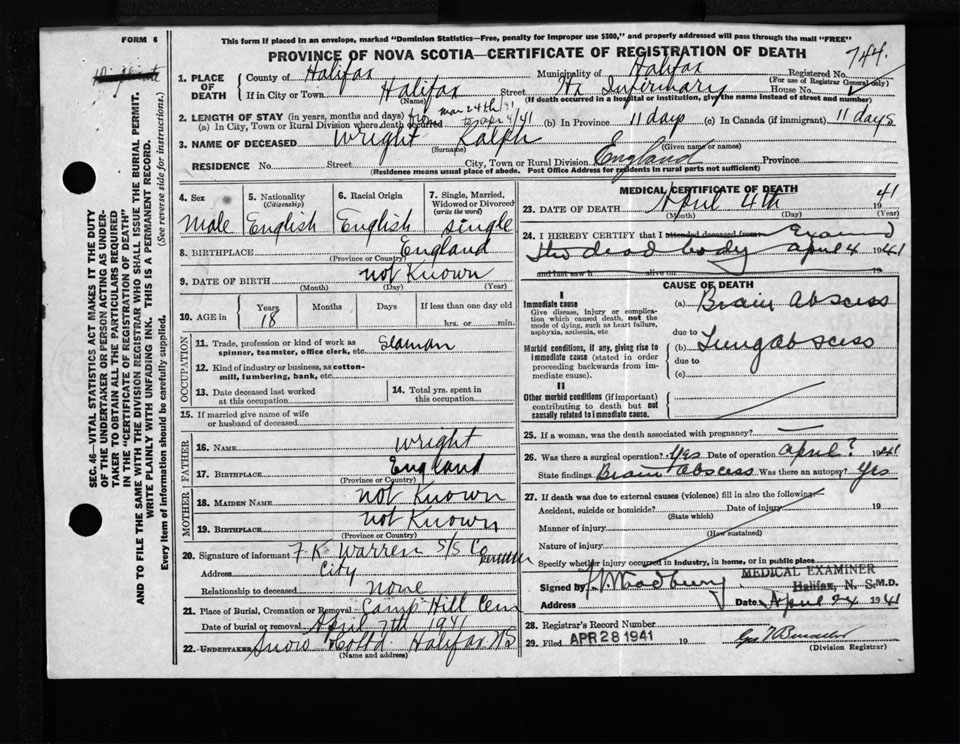 FORM 6
This form if placed in an envelope, marked "Dominion Statistics—Free, penalty for improper use $300," and properly addressed will pass through the mail "FREE"
PROVINCE OF NOVA SCOTIA—CERTIFICATE OF REGISTRATION OF DEATH
744.
1. PLACE OF DEATH
County of Halifax Municipality of Halifax Registered No.
(For use of Registrar General only)
If in City or Town Halifax Street Hx Infirmary House No.
(Name) (If death occurred in a hospital or institution, give the name instead of street and number)
2. LENGTH OF STAY (in years, months and days) from Mar 24th/41
(a) In City, Town or Rural Division where death occurred to Apr 4/41 (b) In Province 11 days (c) In Canada (if immigrant) 11 days
3. NAME OF DECEASED Wright Ralph
(Surname) (Given name or names)
RESIDENCE No. Street City, Town or Rural Division England Province
(Residence means usual place of abode. Post Office Address for residents in rural parts not sufficient)
SEC. 46—VITAL STATISTICS ACT MAKES IT THE DUTY
OF THE UNDERTAKER OR PERSON ACTING AS UNDER-
TAKER TO OBTAIN ALL THE PARTICULARS REQUIRED
IN THE "CERTIFICATE OF REGISTRATION OF DEATH"
AND TO FILE THE SAME WITH THE DIVISION REGISTRAR WHO SHALL ISSUE THE BURIAL PERMIT.
WRITE PLAINLY WITH UNFADING INK. THIS IS A PERMANENT RECORD.
Every item of information should be carefully supplied. (See reverse side for instructions.)
4. Sex
Male
5. Nationality
(Citizenship)
English
6. Racial Origin
English
7. Single, Married,
Widowed or Divorced
(write the word)
single
8. BIRTHPLACE England
(Province or Country)
9. DATE OF BIRTH not Known
(Month) (Day) (Year)
10. AGE in Years 18 Months Days If less than one day old
hrs. or min.
OCCUPATION
11. Trade, profession or kind of work as
spinner, teamster, office clerk, etc. Seaman
12. Kind of industry or business, as cotton-
mill, lumbering, bank, etc
13. Date deceased last worked
at this occupation
14. Total yrs. spent in
this occupation
15. If married give name of wife
or husband of deceased
FATHER
16. NAME Wright
17. BIRTHPLACE England
(Province or Country)
MOTHER
18. MAIDEN NAME not Known
19. BIRTHPLACE not Known
(Province or Country)
20. Signature of informant F. K. Warren S/S Co
Address City
Relationship to deceased None
21. Place of Burial, Cremation or Removal Camp Hill Cem
Date of burial or removal April 7th 1941
22. UNDERTAKER Snow Co Ltd Halifax NS
(Name and address)
MEDICAL CERTIFICATE OF DEATH
23. DATE OF DEATH April 4th 1941
(Month) (Day) (Year)
24. I HEREBY CERTIFY that I attended deceased from Exam'd
the dead body April 4 1941
and last saw h alive on 19
CAUSE OF DEATH
I
Immediate cause
Give disease, injury or complica-
tion which caused death, not the
mode of dying, such as heart failure,
asphyxia, asthenia, etc
(a) Brain abscess
due to
Morbid conditions, if any, giving rise to
immediate cause (stated in order
proceeding backwards from im-
mediate cause).
(b) Lung abscess
due to
(c)
II
Other morbid conditions (if important)
contributing to death but not
causally related to immediate cause.
25. If a woman, was the death associated with pregnancy? —
26. Was there a surgical operation? Yes Date of operation April ? 1941
State findings Brain abscess Was there an autopsy? Yes
27. If death was due to external causes (violence) fill in also the following:
Accident, suicide or homicide? Date of injury 19
(State which)
Manner of injury
(How sustained)
Nature of injury
Specify whether injury occurred in industry, in home, or in public place
Signed by MEDICAL EXAMINER M.D.
Halifax, N. S.
Address Date April 24 1941
28. Registrar's Record Number
29. Filed APR 28 1941 19
(Division Registrar)